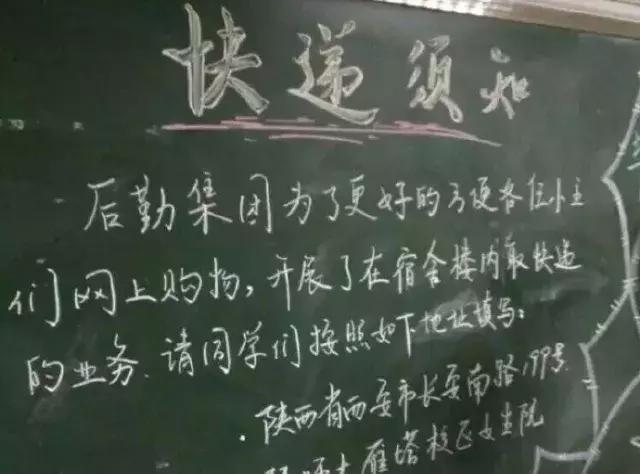 快递须知
后勤集团为了更好的方便各位小主
们网上购物，开展了在宿舍楼内取快递
的业务、请同学们按照如下地址填写：
·陕西省西安市长安南路199号
陕师大雁塔校区女生院